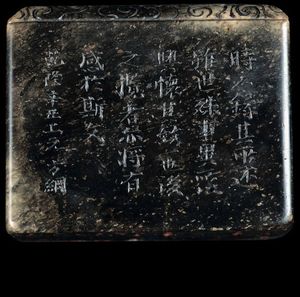 時人錄其所述
雖世殊事異所
興懷其致一也後
之攬者亦將有
感於斯文
乾隆辛上元方綱